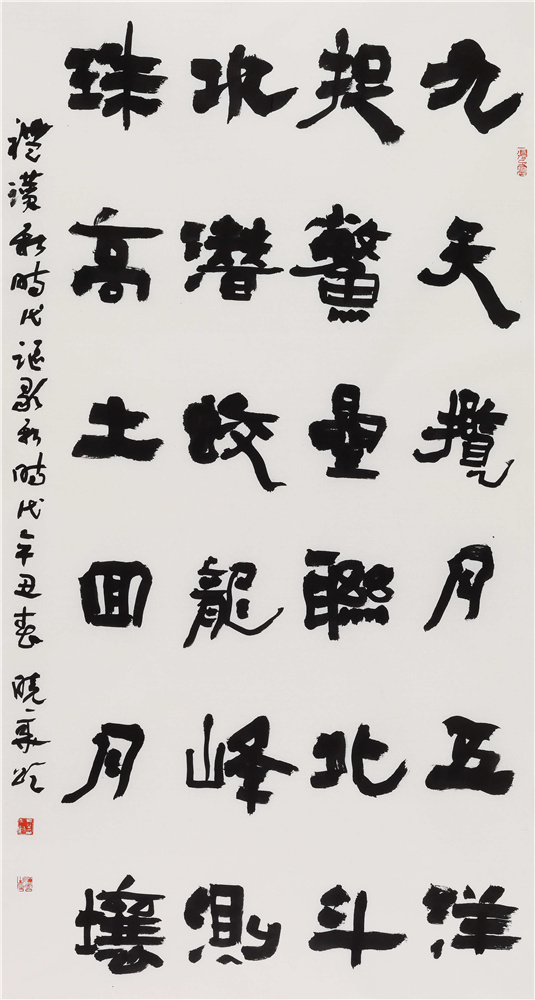 九天攬月五洋
捉鱉星聯北斗
水潛蛟龍峰測
珠高土回月壤
禮讚新時代謳歌新時代辛丑春